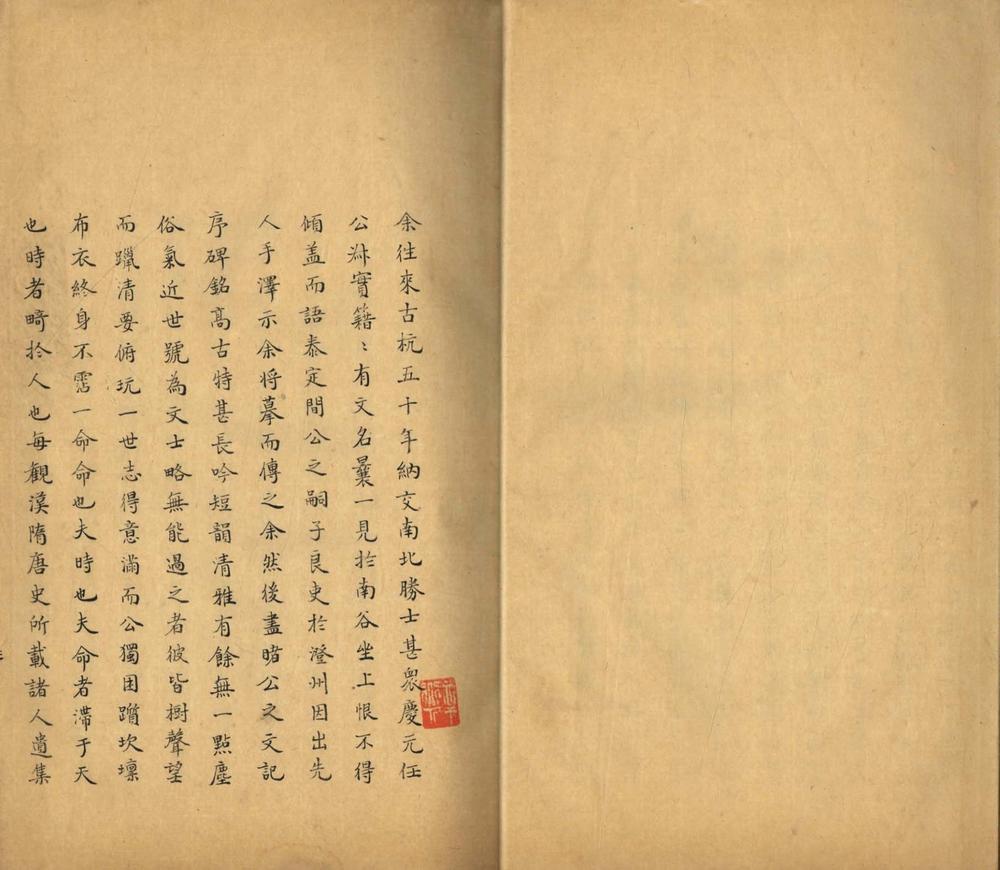 余往來古杭五十年納交南北勝士甚衆慶元任
公叔實籍〻有文名曩一見於南谷坐上恨不得
傾盖而語泰定間公之嗣子良吏於澄州因出先
人手澤示余将摹而傳之余然後盡睹公之文記
序碑銘髙古特甚長吟短韻清雅有餘無一㸃塵
俗氣近世號為文士略無能過之者彼皆樹聲望
而躐清要俯玩一世志得意滿而公獨困躓坎壈
布衣終身不霑一命命也夫時也夫命者滯于天
也時者畸扵人也每觀漢隋唐史所載諸人遺集